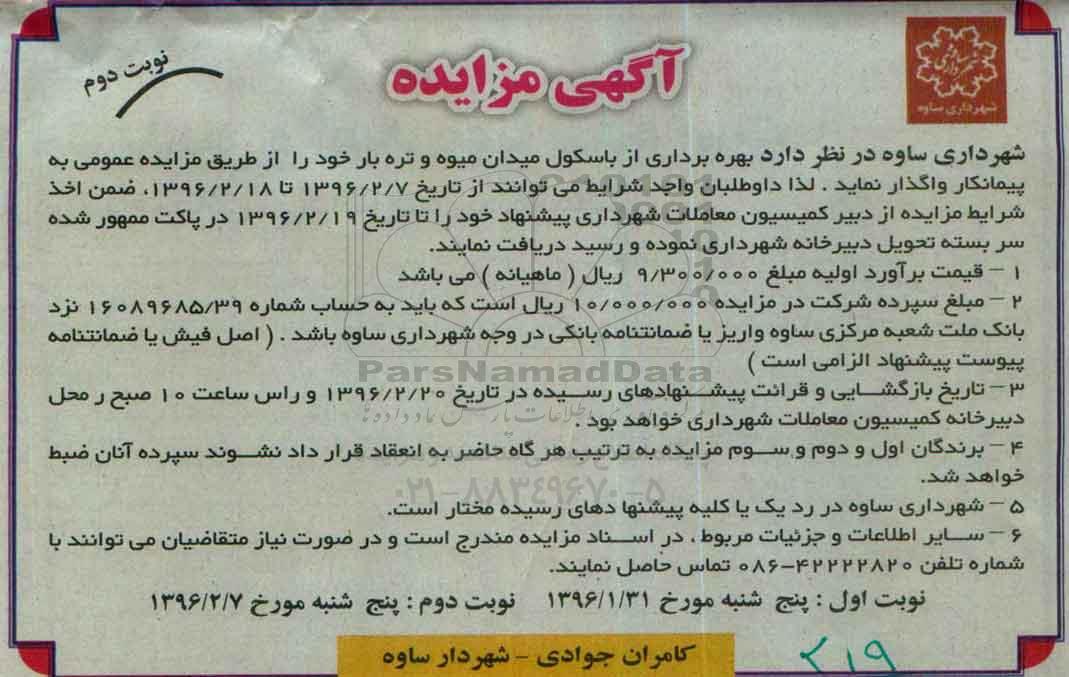 آگهی مزایده
نوبت دوم
شهرداری ساوه
شهرداری ساوه در نظر دارد بهره برداری از باسکول میدان میوه و تره بار خود را از طریق مزایده عمومی به
پیمانکار واگذار نماید . لذا داوطلبان واجد شرایط می توانند از تاریخ ۱۳۹۶/۲/۷ تا ۱۳۹۶/۲/۱۸، ضمن اخذ
شرایط مزایده از دبیر کمیسیون معاملات شهرداری پیشنهاد خود را تا تاریخ ۱۳۹۶/۲/۱۹ در پاکت ممهور شده
سر بسته تحویل دبیرخانه شهرداری نموده و رسید دریافت نمایند.
۱ – قیمت برآورد اولیه مبلغ ۹/۳۰۰/۰۰۰ ریال ( ماهیانه ) می باشد
۲ – مبلغ سپرده شرکت در مزایده ۱۰/۰۰۰/۰۰۰ ریال است که باید به حساب شماره ۱۶۰۸۹۶۸۵/۳۹ نزد
بانک ملت شعبه مرکزی ساوه واریز یا ضمانتنامه بانکی در وجه شهرداری ساوه باشد . ( اصل فیش یا ضمانتنامه
پیوست پیشنهاد الزامی است )
ParsNamadData
۳ – تاریخ بازگشایی و قرائت پیشنهادهای رسیده در تاریخ ۱۳۹۶/۲/۲۰ و راس ساعت ۱۰ صبح ر محل
دبیرخانه کمیسیون معاملات شهرداری خواهد بود .
۴ – برندگان اول و دوم و سوم مزایده به ترتیب هر گاه حاضر به انعقاد قرار داد نشوند سپرده آنان ضبط
خواهد شد.
۰۲۱-۸۸۳۴۹۶۷۰-۵
۵ – شهرداری ساوه در رد یک یا کلیه پیشنها دهای رسیده مختار است.
۶ – سایر اطلاعات و جزئیات مربوط ، در اسناد مزایده مندرج است و در صورت نیاز متقاضیان می توانند با
شماره تلفن ۴۲۲۲۲۸۲۰-۰۸۶ تماس حاصل نمایند.
نوبت اول : پنج شنبه مورخ ۱۳۹۶/۱/۳۱ نوبت دوم : پنج شنبه مورخ ۱۳۹۶/۲/۷
کامران جوادی – شهردار ساوه
۲۱۹